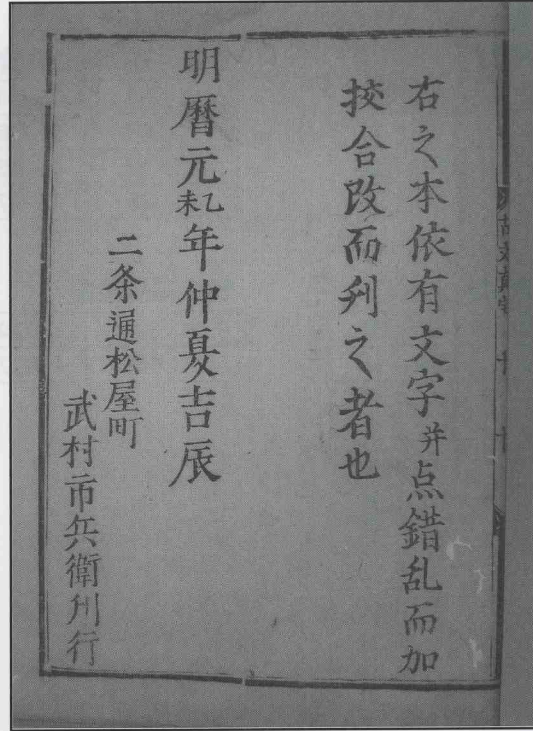 右之本依有文字并点錯乱而加
挍合改而刋之者也
明暦元乙未年仲夏吉辰
二条通松屋町
武村市兵衛刋行